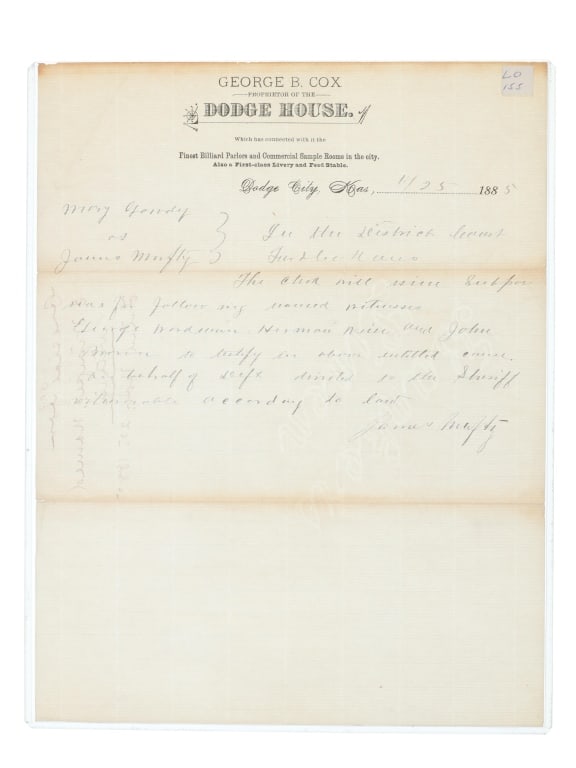 GEORGE B. COX
PROPRIETOR OF THE
DODGE HOUSE.
Which has connected with it the
Finest Billiard Parlors and Commercial Sample Rooms in the city.
Also a First-class Livery and Feed Stable.
Dodge City, Kas, 11/25 1885
LO
155
Mary Gowdy
vs
James Mufty
In the District Court
The clerk will issue Subpoe
nas for following named witnesses
George Wordman Herman and John
Brown to testify in above entitled cause.
on behalf of Deft directed to the Sheriff
returnable according to law
James Mufty